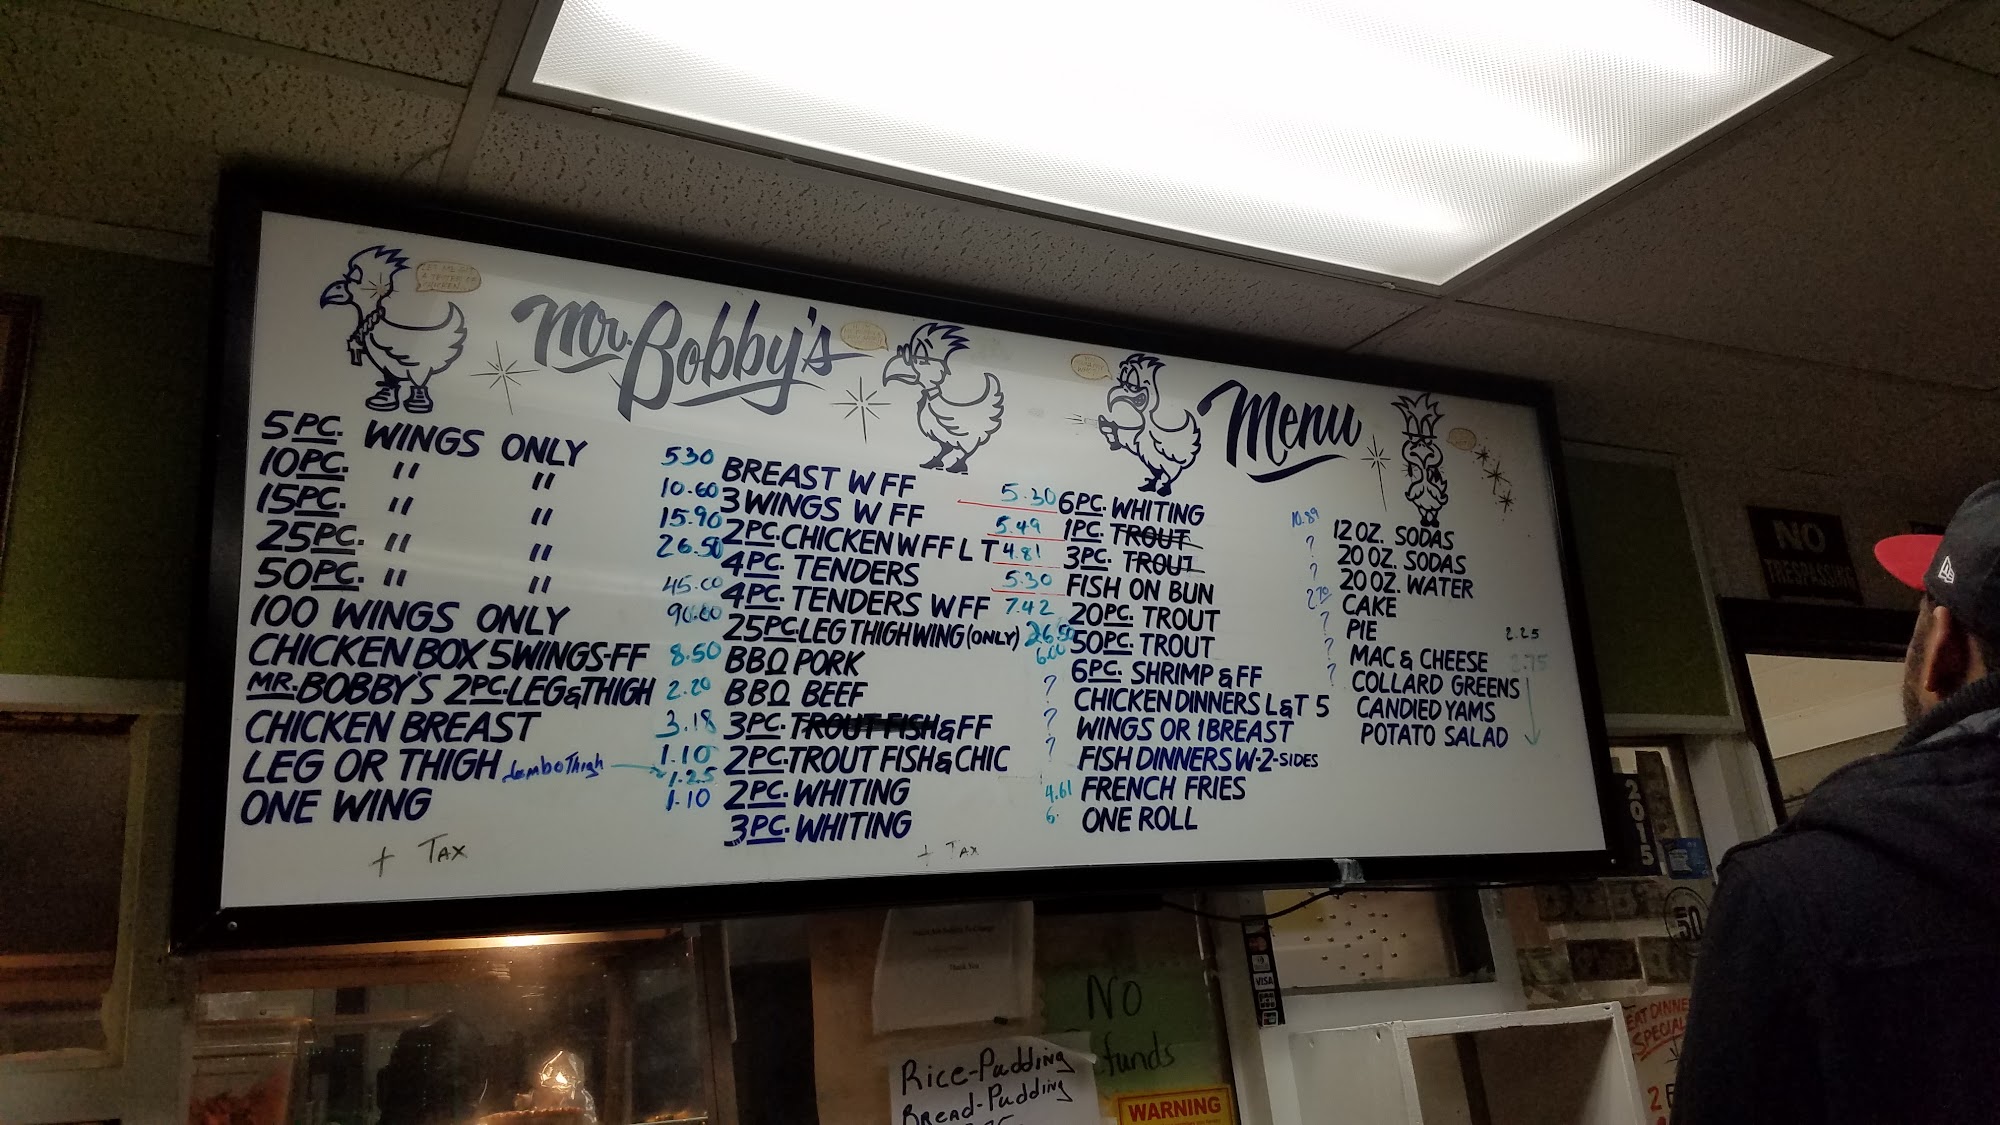 Mr. Bobby's Menu
5PC. WINGS ONLY 5.30
10PC. " " 10.60
15PC. " " 15.90
25PC. " " 26.50
50PC. " " 45.00
100 WINGS ONLY
CHICKEN BOX 5 WINGS-FF 8.50
MR. BOBBY'S 2PC. LEG & THIGH 2.20
CHICKEN BREAST 3.18
LEG OR THIGH 1.10
Jumbo Thigh 1.25
ONE WING 1.10
+ TAX
BREAST W FF 5.30
3 WINGS W FF 5.49
2PC. CHICKEN W FF L T 4.81
4PC. TENDERS 5.30
4PC. TENDERS W FF 7.42
25PC. LEG THIGH WING (ONLY) 26.50
BBQ PORK 6.00
BBQ BEEF ?
3PC. TROUT FISH & FF ?
2PC. TROUT FISH & CHIC ?
2PC. WHITING 4.61
3PC. WHITING 6.
+ TAX
6PC. WHITING 10.89
1PC. TROUT ?
3PC. TROUT ?
FISH ON BUN
20PC. TROUT ?
50PC. TROUT ?
6PC. SHRIMP & FF ?
CHICKEN DINNERS L&T 5
WINGS OR 1 BREAST
FISH DINNERS W-2-SIDES
FRENCH FRIES
ONE ROLL
12 OZ. SODAS
20 OZ. SODAS
20 OZ. WATER
CAKE
PIE 2.25
MAC & CHEESE 2.75
COLLARD GREENS
CANDIED YAMS
POTATO SALAD
NO
TRESPASSING
2015
50
VISA
Thank You
NO
Refunds
Rice-Pudding
Bread-Pudding
WARNING
SPECIAL
2